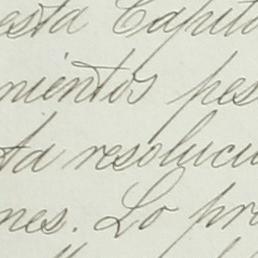 esta Capita
mientos pes
ta resoluci
nes. Lo pro